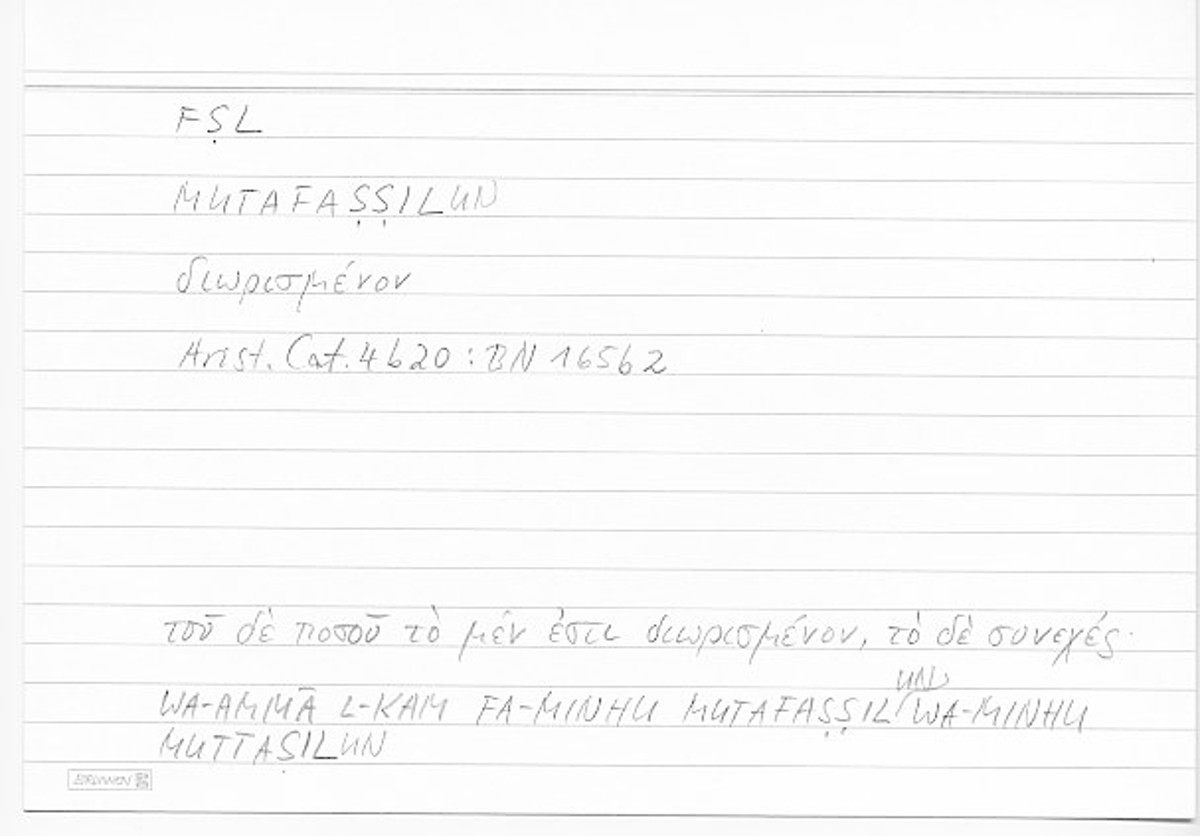 FṢL
MUTAFAṢṢILUN
διωρισμένον
Arist. Cat. 4b20 : BN 165b2
τοῦ δὲ ποσοῦ τὸ μέν ἐστι διωρισμένον, τὸ δὲ συνεχές·
UN
WA-AMMĀ L-KAM FA-MINHU MUTAFAṢṢIL WA-MINHU
MUTTAṢILUN
BRUNNEN